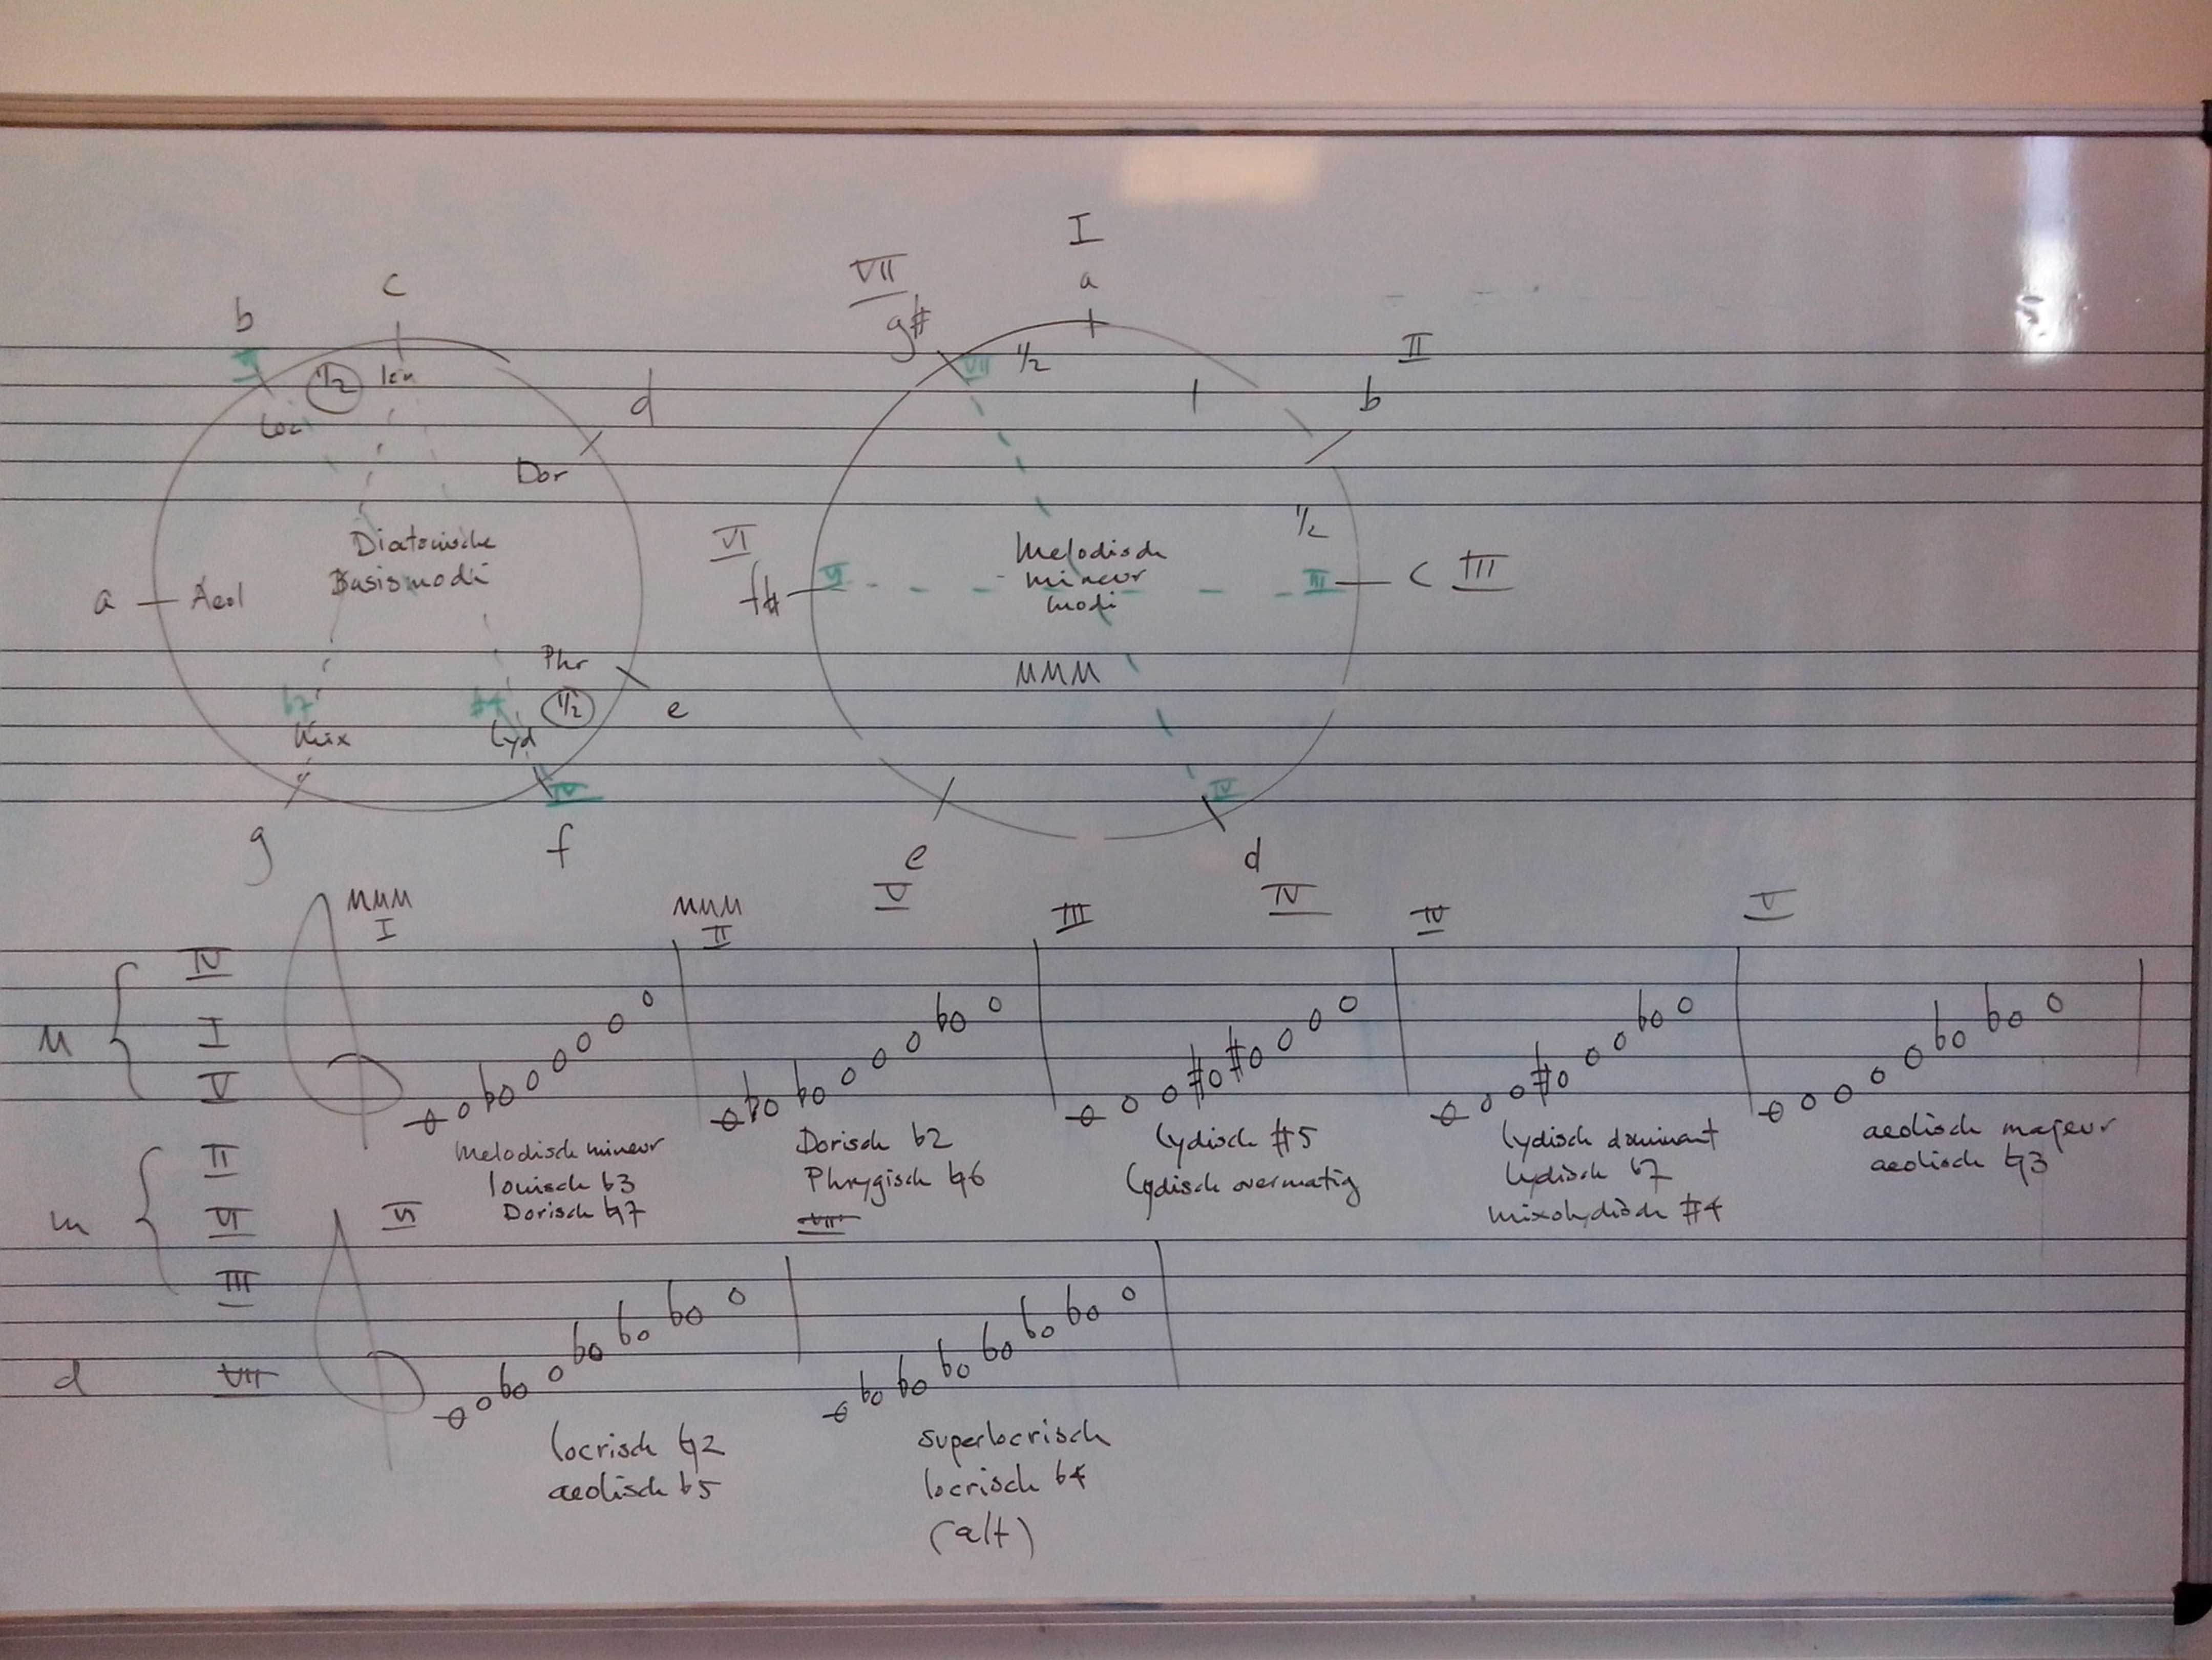 c
b
½
Ion
d
Loc
Dor
Diatonische
Basismodi
a
Aeol
Phr
½
e
b7
#4
Mix
Lyd
IV
g
f
I
a
VII
g#
VII
½
II
b
½
VI
f#
VI
Melodisch
mineur
modi
MMM
III
c III
IV
e
V
d
IV
MMM
I
MMM
II
III
IV
V
M
IV
I
V
m
II
VI
III
d
VII
Melodisch mineur
Ionisch b3
Dorisch ♮7
Dorisch b2
Phrygisch ♮6
Lydisch #5
Lydisch overmatig
Lydisch dominant
Lydisch b7
Mixolydisch #4
aeolisch majeur
aeolisch ♮3
VI
VII
locrisch ♮2
aeolisch b5
superlocrisch
locrisch b4
(alt)